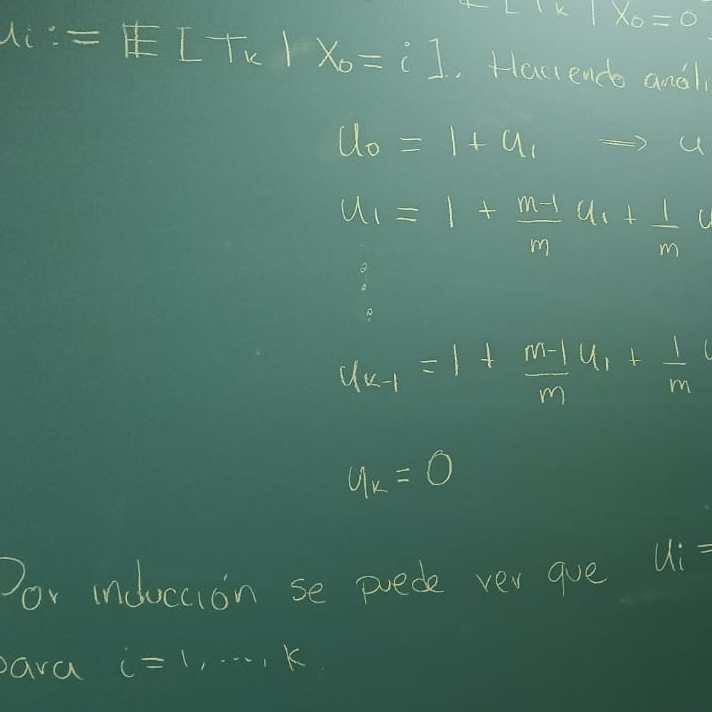 [T_k | X_0 = 0
u_i := 𝔼[T_k | X_0 = i]. Haciendo análi
u_0 = 1 + u_1 ⟹ u
u_1 = 1 + \frac{m-1}{m} u_1 + \frac{1}{m} u
⋮
u_{k-1} = 1 + \frac{m-1}{m} u_1 + \frac{1}{m} u
u_k = 0
Por inducción se puede ver que u_i =
para i = 1, ..., k.